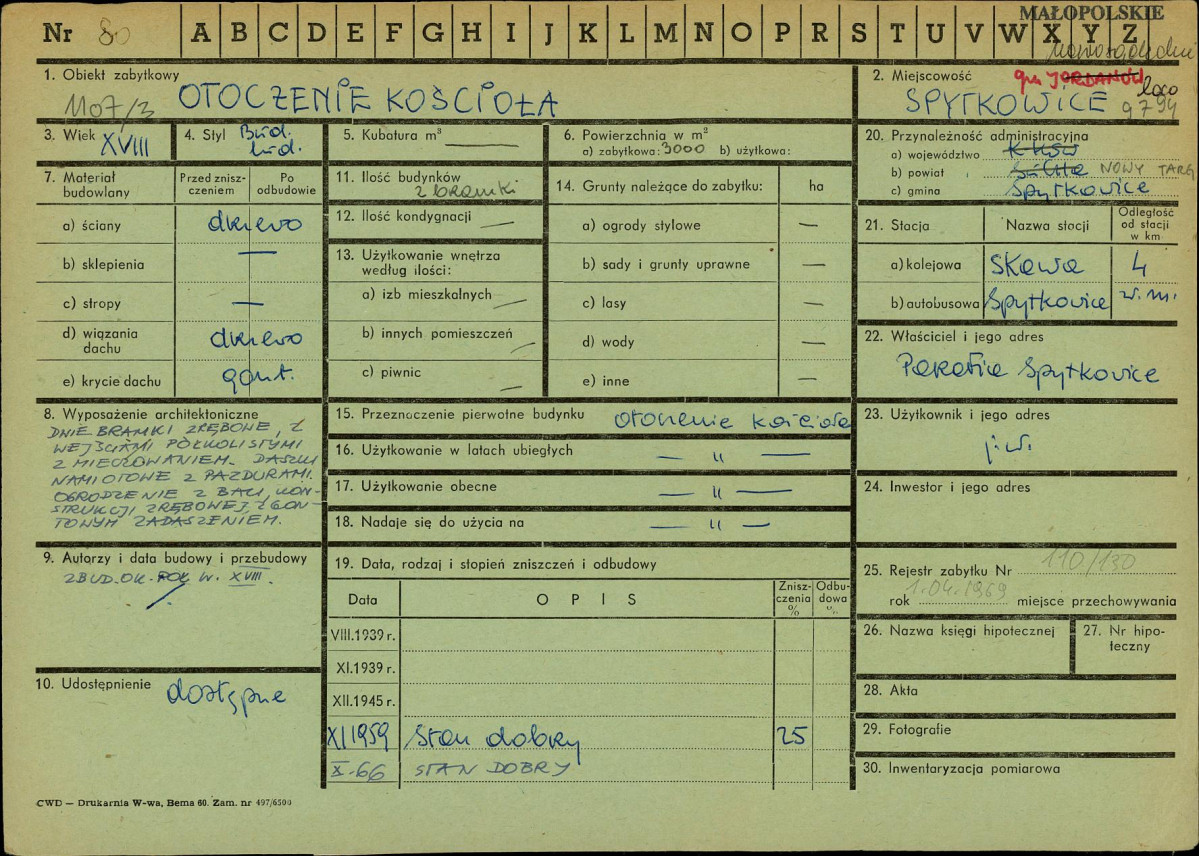 Nr 80 A B C D E F G H I J K L M N O P R S T U V W X Y Z
MAŁOPOLSKIE
1. Obiekt zabytkowy
1107/3 OTOCZENIE KOŚCIOŁA
2. Miejscowość gm JORDANÓW
SPYTKOWICE loco
9794
3. Wiek XVIII
4. Styl Bud. lud.
5. Kubatura m³ —
6. Powierzchnia w m²
a) zabytkowa: 3000 b) użytkowa:
20. Przynależność administracyjna
a) województwo Kraków
b) powiat Sucha NOWY TARG
c) gmina Spytkowice
7. Materiał budowlany
Przed zniszczeniem
Po odbudowie
a) ściany drzewo
b) sklepienia —
c) stropy —
d) wiązania dachu drzewo
e) krycie dachu gont.
11. Ilość budynków
2 bramki
12. Ilość kondygnacji —
13. Użytkowanie wnętrza
według ilości:
a) izb mieszkalnych —
b) innych pomieszczeń —
c) piwnic —
14. Grunty należące do zabytku: ha
a) ogrody stylowe —
b) sady i grunty uprawne —
c) lasy —
d) wody —
e) inne —
21. Stacja Nazwa stacji Odległość od stacji w km
a) kolejowa Skawa 4
b) autobusowa Spytkowice w.m.
22. Właściciel i jego adres
Parafia Spytkowice
8. Wyposażenie architektoniczne
DWIE BRAMKI ZRĘBOWE, Z
WEJŚCIAMI PÓŁKOLISTYMI
Z MIECZOWANIEM. DASZKI
NAMIOTOWE Z PAZDURAMI.
OGRODZENIE Z BALI, KON-
STRUKCJI ZRĘBOWEJ, Z GON-
TOWYM ZADASZENIEM.
15. Przeznaczenie pierwotne budynku otoczenie kościoła
16. Użytkowanie w latach ubiegłych — " —
17. Użytkowanie obecne — " —
18. Nadaje się do użycia na — " —
23. Użytkownik i jego adres
j.w.
24. Inwestor i jego adres
9. Autorzy i data budowy i przebudowy
ZBUD. OK. POŁ W. XVIII.
19. Data, rodzaj i stopień zniszczeń i odbudowy
Data OPIS Zniszczenia % Odbudowa %
VIII.1939 r.
XI.1939 r.
XII.1945 r.
XI 1959 Stan dobry 25
X-66 STAN DOBRY
25. Rejestr zabytku Nr 110/130
rok 1.04.1969 miejsce przechowywania
26. Nazwa księgi hipotecznej
27. Nr hipoteczny
10. Udostępnienie dostępne
28. Akta
29. Fotografie
30. Inwentaryzacja pomiarowa
CWD — Drukarnia W-wa, Bema 60. Zam. nr 497/6500